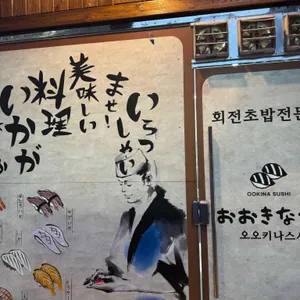 いらっしゃい
ませ!
美味しい
料理
いかが
회전초밥전문
OOKINA SUSHI
おおきな
오오키나스